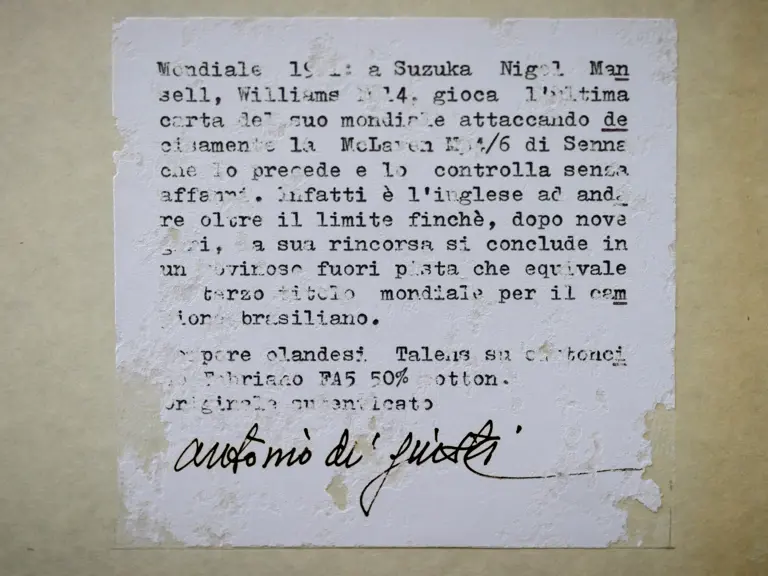 Mondiale 1991: a Suzuka Nigel Man
sell, Williams FW14, gioca l'ultima
carta del suo mondiale attaccando de
cisamente la McLaren MP4/6 di Senna
che lo precede e lo controlla senza
affanni. Infatti è l'inglese ad anda
re oltre il limite finchè, dopo nove
giri, la sua rincorsa si conclude in
un rovinoso fuori pista che equivale
terzo titolo mondiale per il cam
pione brasiliano.
Tempere olandesi Talens su cartonci
no Fabriano FA5 50% cotton.
originale autenticato
antonio di giusti